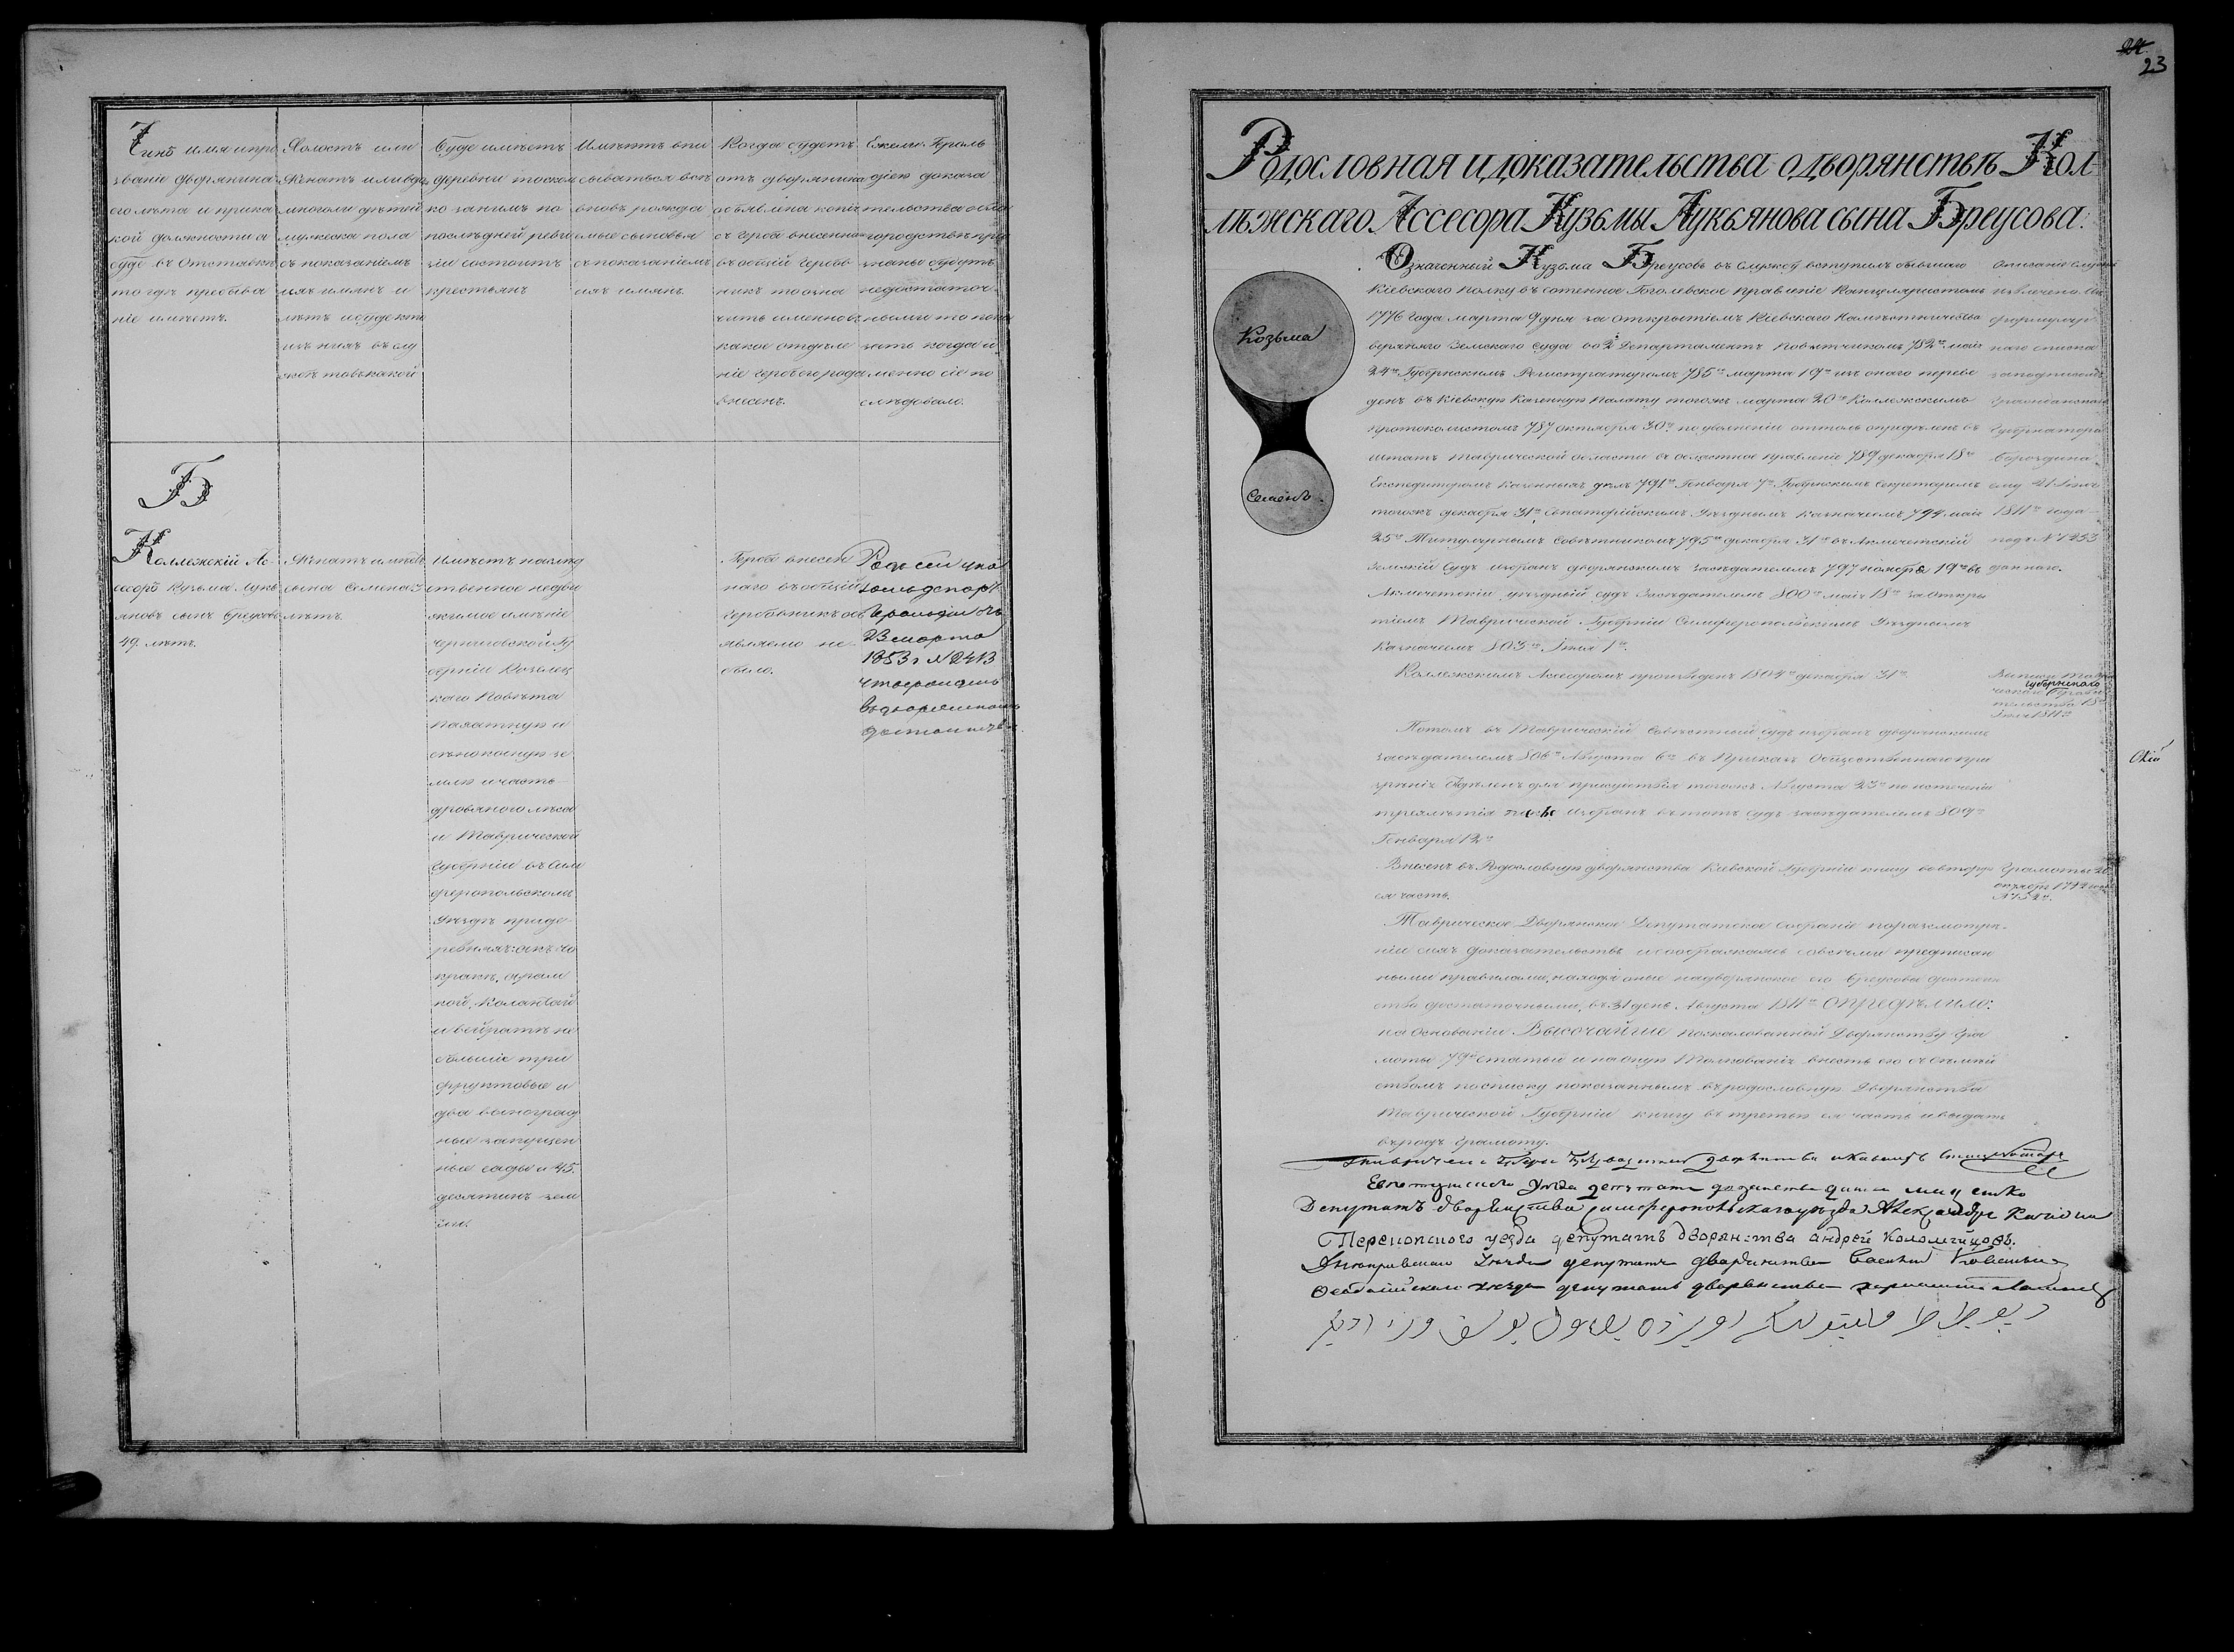 Чинъ имя ипро
званіе дворянина
его лѣта и прика
кой должности а
буде въ отставкѣ
то гдѣ пребыва
ніе имѣетъ.
Холостъ или
Женатъ иливдов
многоли дѣтей
мужеска пола
съ показаніемъ
ихъ имянъ и
лѣтъ и буде кто
изъ нихъ въ слу
жбѣ товъкакой
Буде имѣетъ
деревни тосколь
ко занимъ по
послѣдней реви
зіи состоитъ
крестьянъ
Имѣютъ впи
сываться всѣ
вновь рожда
емые сыновья
съ показаніемъ
ихъ имянъ.
Когда будетъ
отъ дворянина
объявлена копія
съ герба внесенна
въобщій гербо
никъ то озна
чить именно въ
какое отдѣле
ніе гербъ его рода
внесенъ.
Ежели Героль
діею доказа
тельства о бла
городствѣ приз
наны будутъ
недостаточ
ными то пока
зать когда и
менно сіе по
слѣдовало.
Б
Коллежскій Ас-
сесоръ Кузьма Лукь
яновъ сынъ Бреусовъ
49. лѣтъ.
Женатъ имѣетъ
сына Семена 3
лѣтъ.
Имѣетъ наслед
ственное недви
жимое имѣніе
Черниговской Гу
берніи Козелец
каго Повѣта
пахатную и
сѣнокосную зе
млю и часть
дровянаго лѣса
и Таврической
Губерніи въ Сим
феропольскомъ
Уѣздѣ при де-
ревняхъ: акъ чо
кракъ,
кой,
и не
большіе три
фруктовые и
два виноград
ные запущен
ные сады и 45.
десятинъ зем
ли.
Герба внесен
наго въобщій
гербовникъ объ
являемо не
было.
Родъ сей ука
зомъ депар.
Герольдіи отъ
23 марта
1853 г № 2413
утвержденъ
въдворянскомъ
достоинствѣ.
24.
23
Родословная идоказательства одворянствѣ Кол
лѣжскаго Ассесора Кузьмы Лукьянова сына Бреусова.
Козьма
Семенъ
Означенный Кузьма Бреусовъ въ службу вступилъ бывшаго
Кіевскаго полку въ сотенное Гоголевское правленіе Канцеляристомъ
1776 года марта 9 дня за открытіемъ Кіевскаго Намѣстничества
верхняго Земскаго суда во 2й Департаментъ Повытчикомъ 782го маія
24го Губернскимъ Регистраторомъ 785го марта 19го изъ онаго переве
денъ въ Кіевскую Казенную палату тогожъ марта 20го Коллежскимъ
протоколистомъ 787 октября 30го по уволненіи оттоль опредѣленъ въ
штатъ Таврической области въ областное правленіе 789 декабря 18го
Експедиторомъ казенныхъ дѣлъ 791го Генваря 7го Губернскимъ Секретаремъ
тогожъ декабря 31го Евпаторійскимъ Уѣзднымъ казначеемъ 794 маія
25го Титулярнымъ совѣтникомъ 795го декабря 31го въ Акмечетскій
земскій Судъ избранъ дворянскимъ засѣдателемъ 797 ноября 19го въ
Акмечетскій уѣздный судъ Засѣдателемъ 800го маія 18го заоткры
тіемъ Таврической Губерніи Симферопольскимъ Уѣзднымъ
Казначеемъ 803го Іюля 1го.
Коллежскимъ Ассесоромъ произведенъ 1804го декабря 31го.
Потомъ въ Таврическій Совѣстный судъ избранъ дворянскимъ
засѣдателемъ 806го Августа 6го въ Приказъ Общественнаго при
зрѣнія Удѣленъ для присутствія тогожъ Августа 23го по истеченіи
трехлѣтія избранъ въ тотъ судъ засѣдателемъ 809го
Генваря 12го
Внесенъ въ Родословную дворянства Кіевской Губерніи книгу вовторую
ея часть.
Таврическое Дворянское Депутатское собраніе поразсмотрѣ-
ніи сихъ доказательствъ исообразжаясь совсѣми предписан
ными правилами, находя оные надворянское его Бреусова достоин
ство достаточными, въ 31 день Августа 1811го опредѣлило:
на основаніи Высочайше пожалованной Дворянству Гра
моты 79й статьи и на оную Толкованія внесть его съ семей
ствомъ посписку показаннымъ въродословную Дворянства
Таврической Губерніи книгу въ третью ея часть и выдать
въродъ Грамоту.
Описаніе службы
извлечено изъ
формуляр
наго списка
заподписомъ
Гражданскаго
Губернатора
Бороздина
ему 21 Іюля
1811го года
подъ № 1253
даннаго.
Выписи Таври
ческаго губернскаго Прави
тельства 18го
Іюля 1811го
Грамоты 20
октября 1792 года
№ 152го.
дворянства
уѣзда депутатъ дворянства
Депутатъ дворянства симферопольскагоуѣзда Александръ
Перекопского уезда депутатъ дворянства андрей Коломейцовъ.
Днепровскаго уѣзда депутатъ дворянства Василей
Феодосійскаго уѣзда депутатъ дворянства